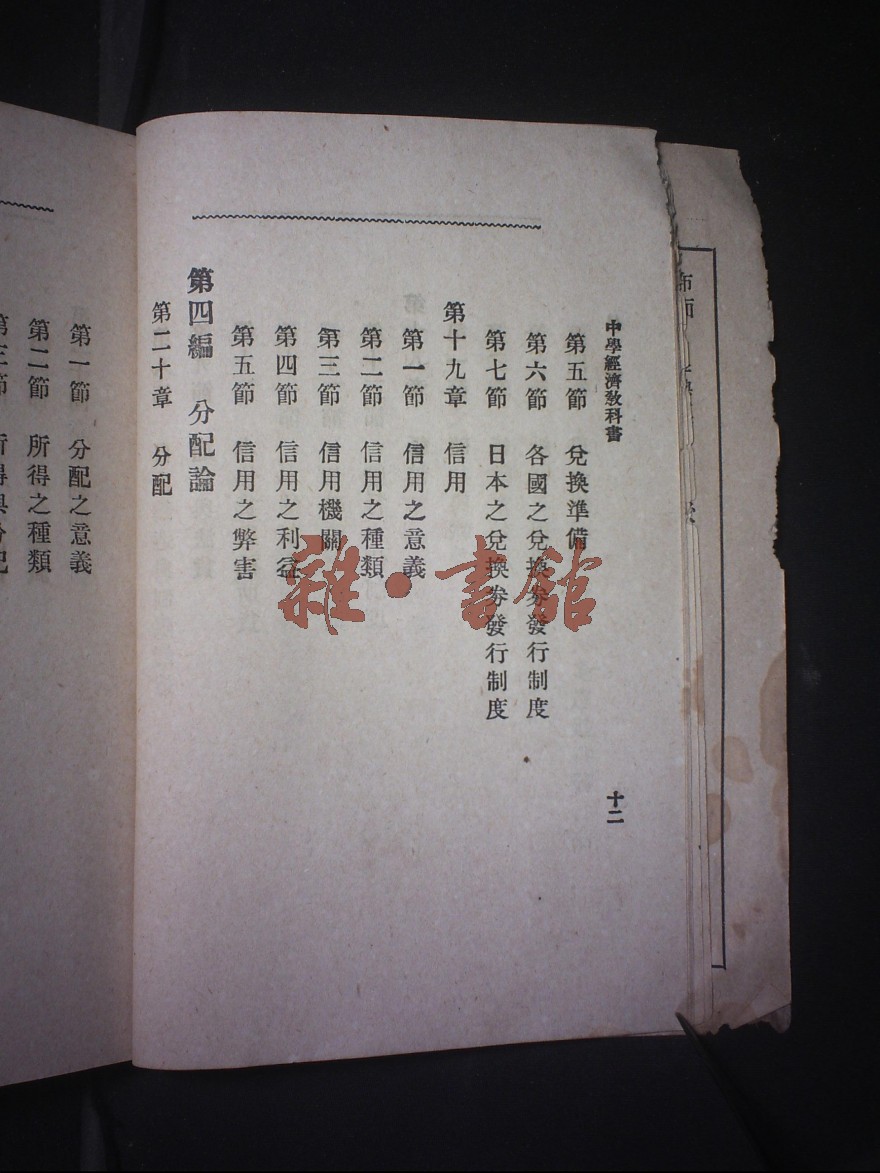 中學經濟教科書
十二
第五節 兌換準備
第六節 各國之兌換券發行制度
第七節 日本之兌換券發行制度
第十九章 信用
第一節 信用之意義
第二節 信用之種類
第三節 信用機關
第四節 信用之利益
第五節 信用之弊害
第四編 分配論
第二十章 分配
第一節 分配之意義
第二節 所得之種類
第三節 所得與分配
雜·書館